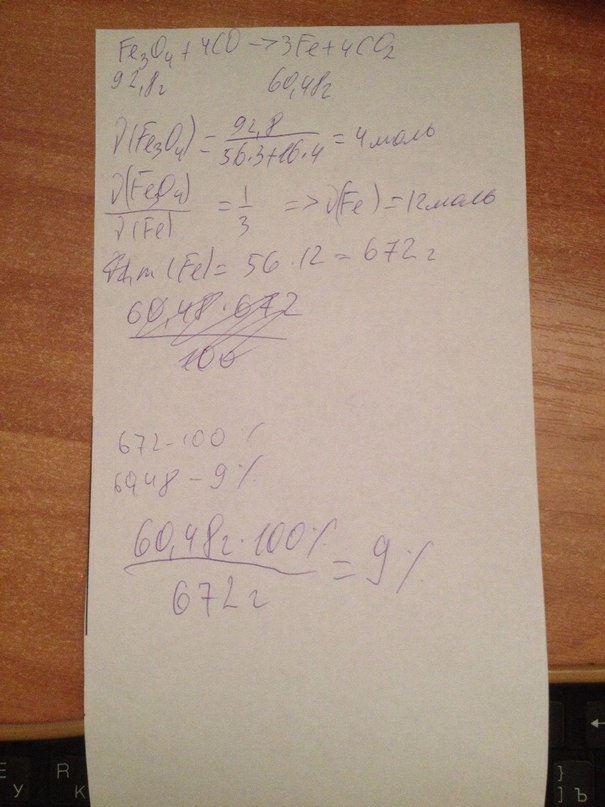 Fe₃O₄ + 4CO -> 3Fe + 4CO₂
92,8г 60,48г
ν(Fe₃O₄) = 92,8 / 56·3+16·4 = 4 моль
ν(Fe₃O₄) / ν(Fe) = 1/3 => ν(Fe) = 12 моль
m(Fe) = 56 · 12 = 672 г
60,48 · 672 / 100
672 - 100 %
60,48 - 9 %
60,48 г · 100 % / 672 г = 9 %
E R
У К
} ] Ъ
←